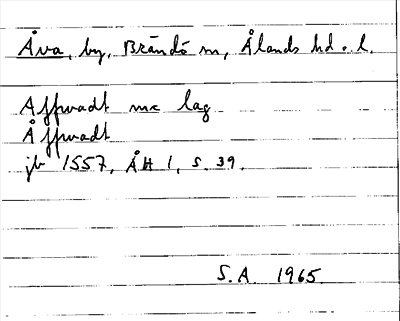 Åva, by, Brändö sn, Ålands hd o. l.
Affwadt mk lag
Åffwadt
jb 1557, ÅH 1, s. 39.
S.A. 1965.